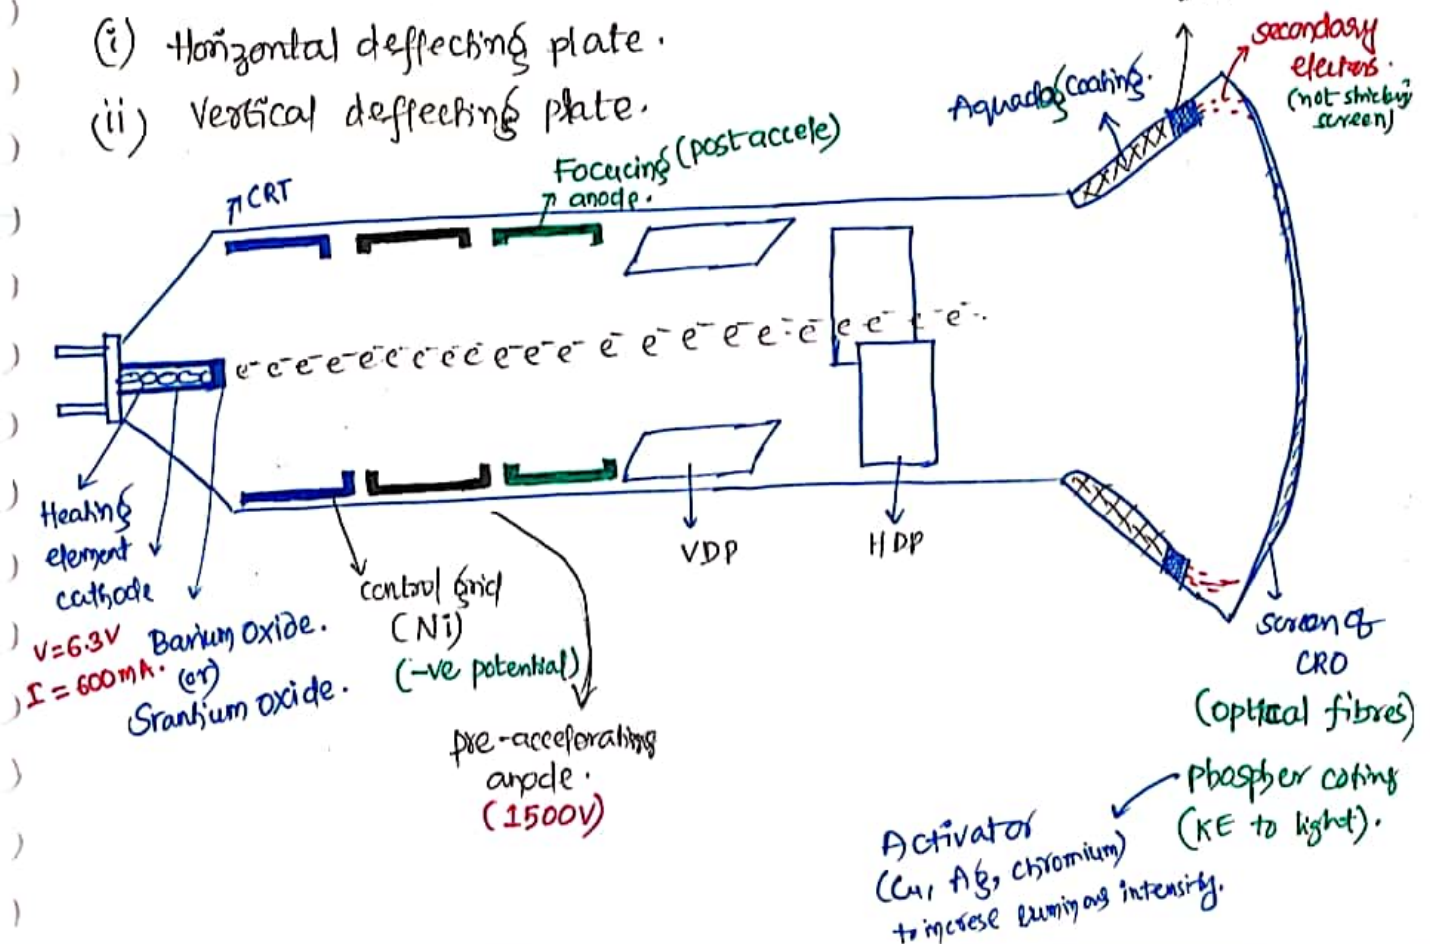 (i) Horizontal deffecting plate.
(ii) Vertical deffecting plate.
secondary
electrons.
(not sticking
screen)
Aquadag coating.
Focucing (post accele)
anode.
CRT
e- e- e- e- e- e- e- e- e- e- e- e- e- e- e- e- e- e- e- e- e-
Heating
element
cathode
V=6.3V
I = 600mA.
Barium Oxide.
(or)
Srantium oxide.
control grid
(Ni)
(-ve potential)
pre-accelerating
anode.
(1500V)
VDP
HDP
screen of
CRO
(optical fibres)
phospher coting
(KE to light).
Activator
(Cu, Ag, chromium)
to increse luminous intensity.